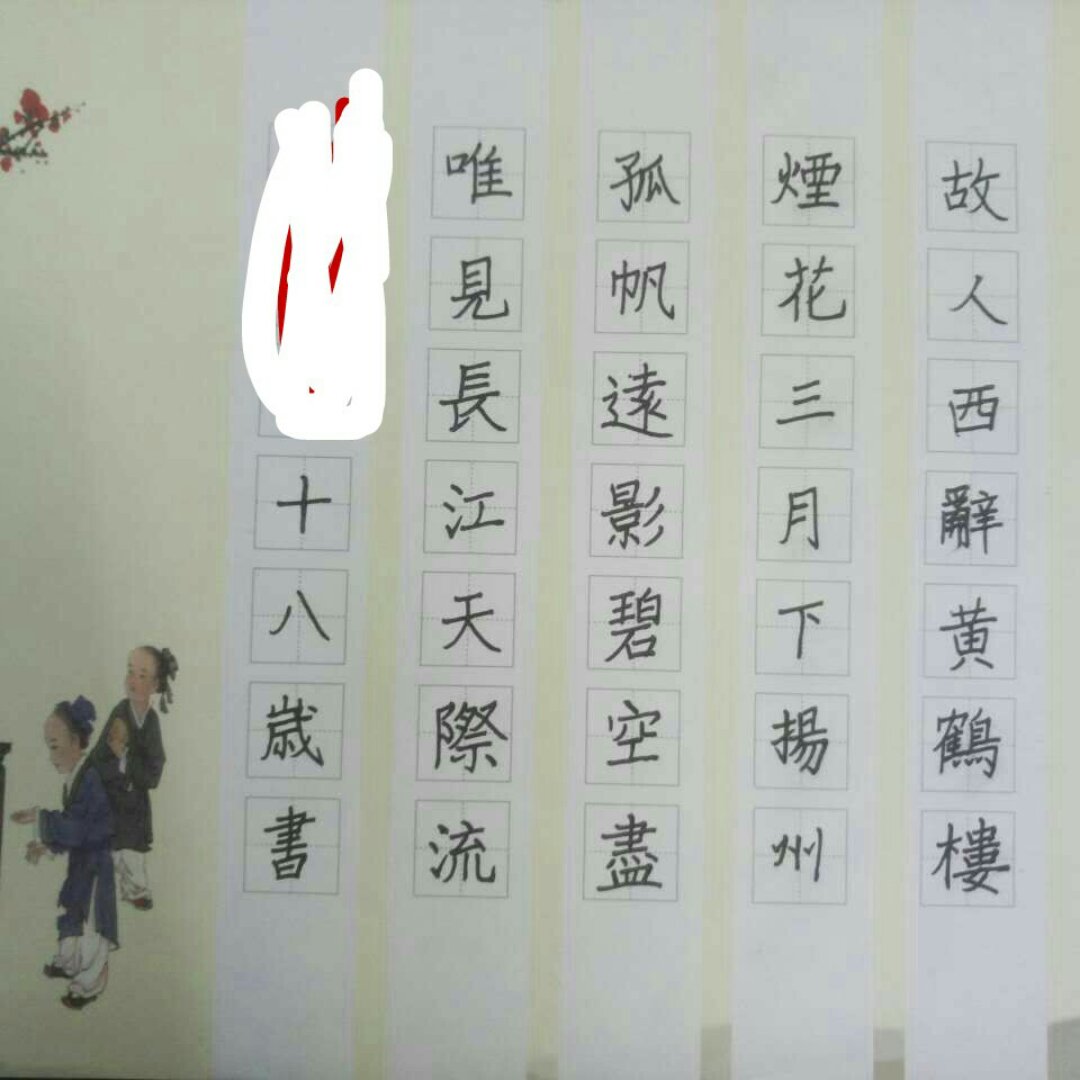 故人西辭黄鶴樓
煙花三月下揚州
孤帆遠影碧空盡
唯見長江天際流
十八歳書